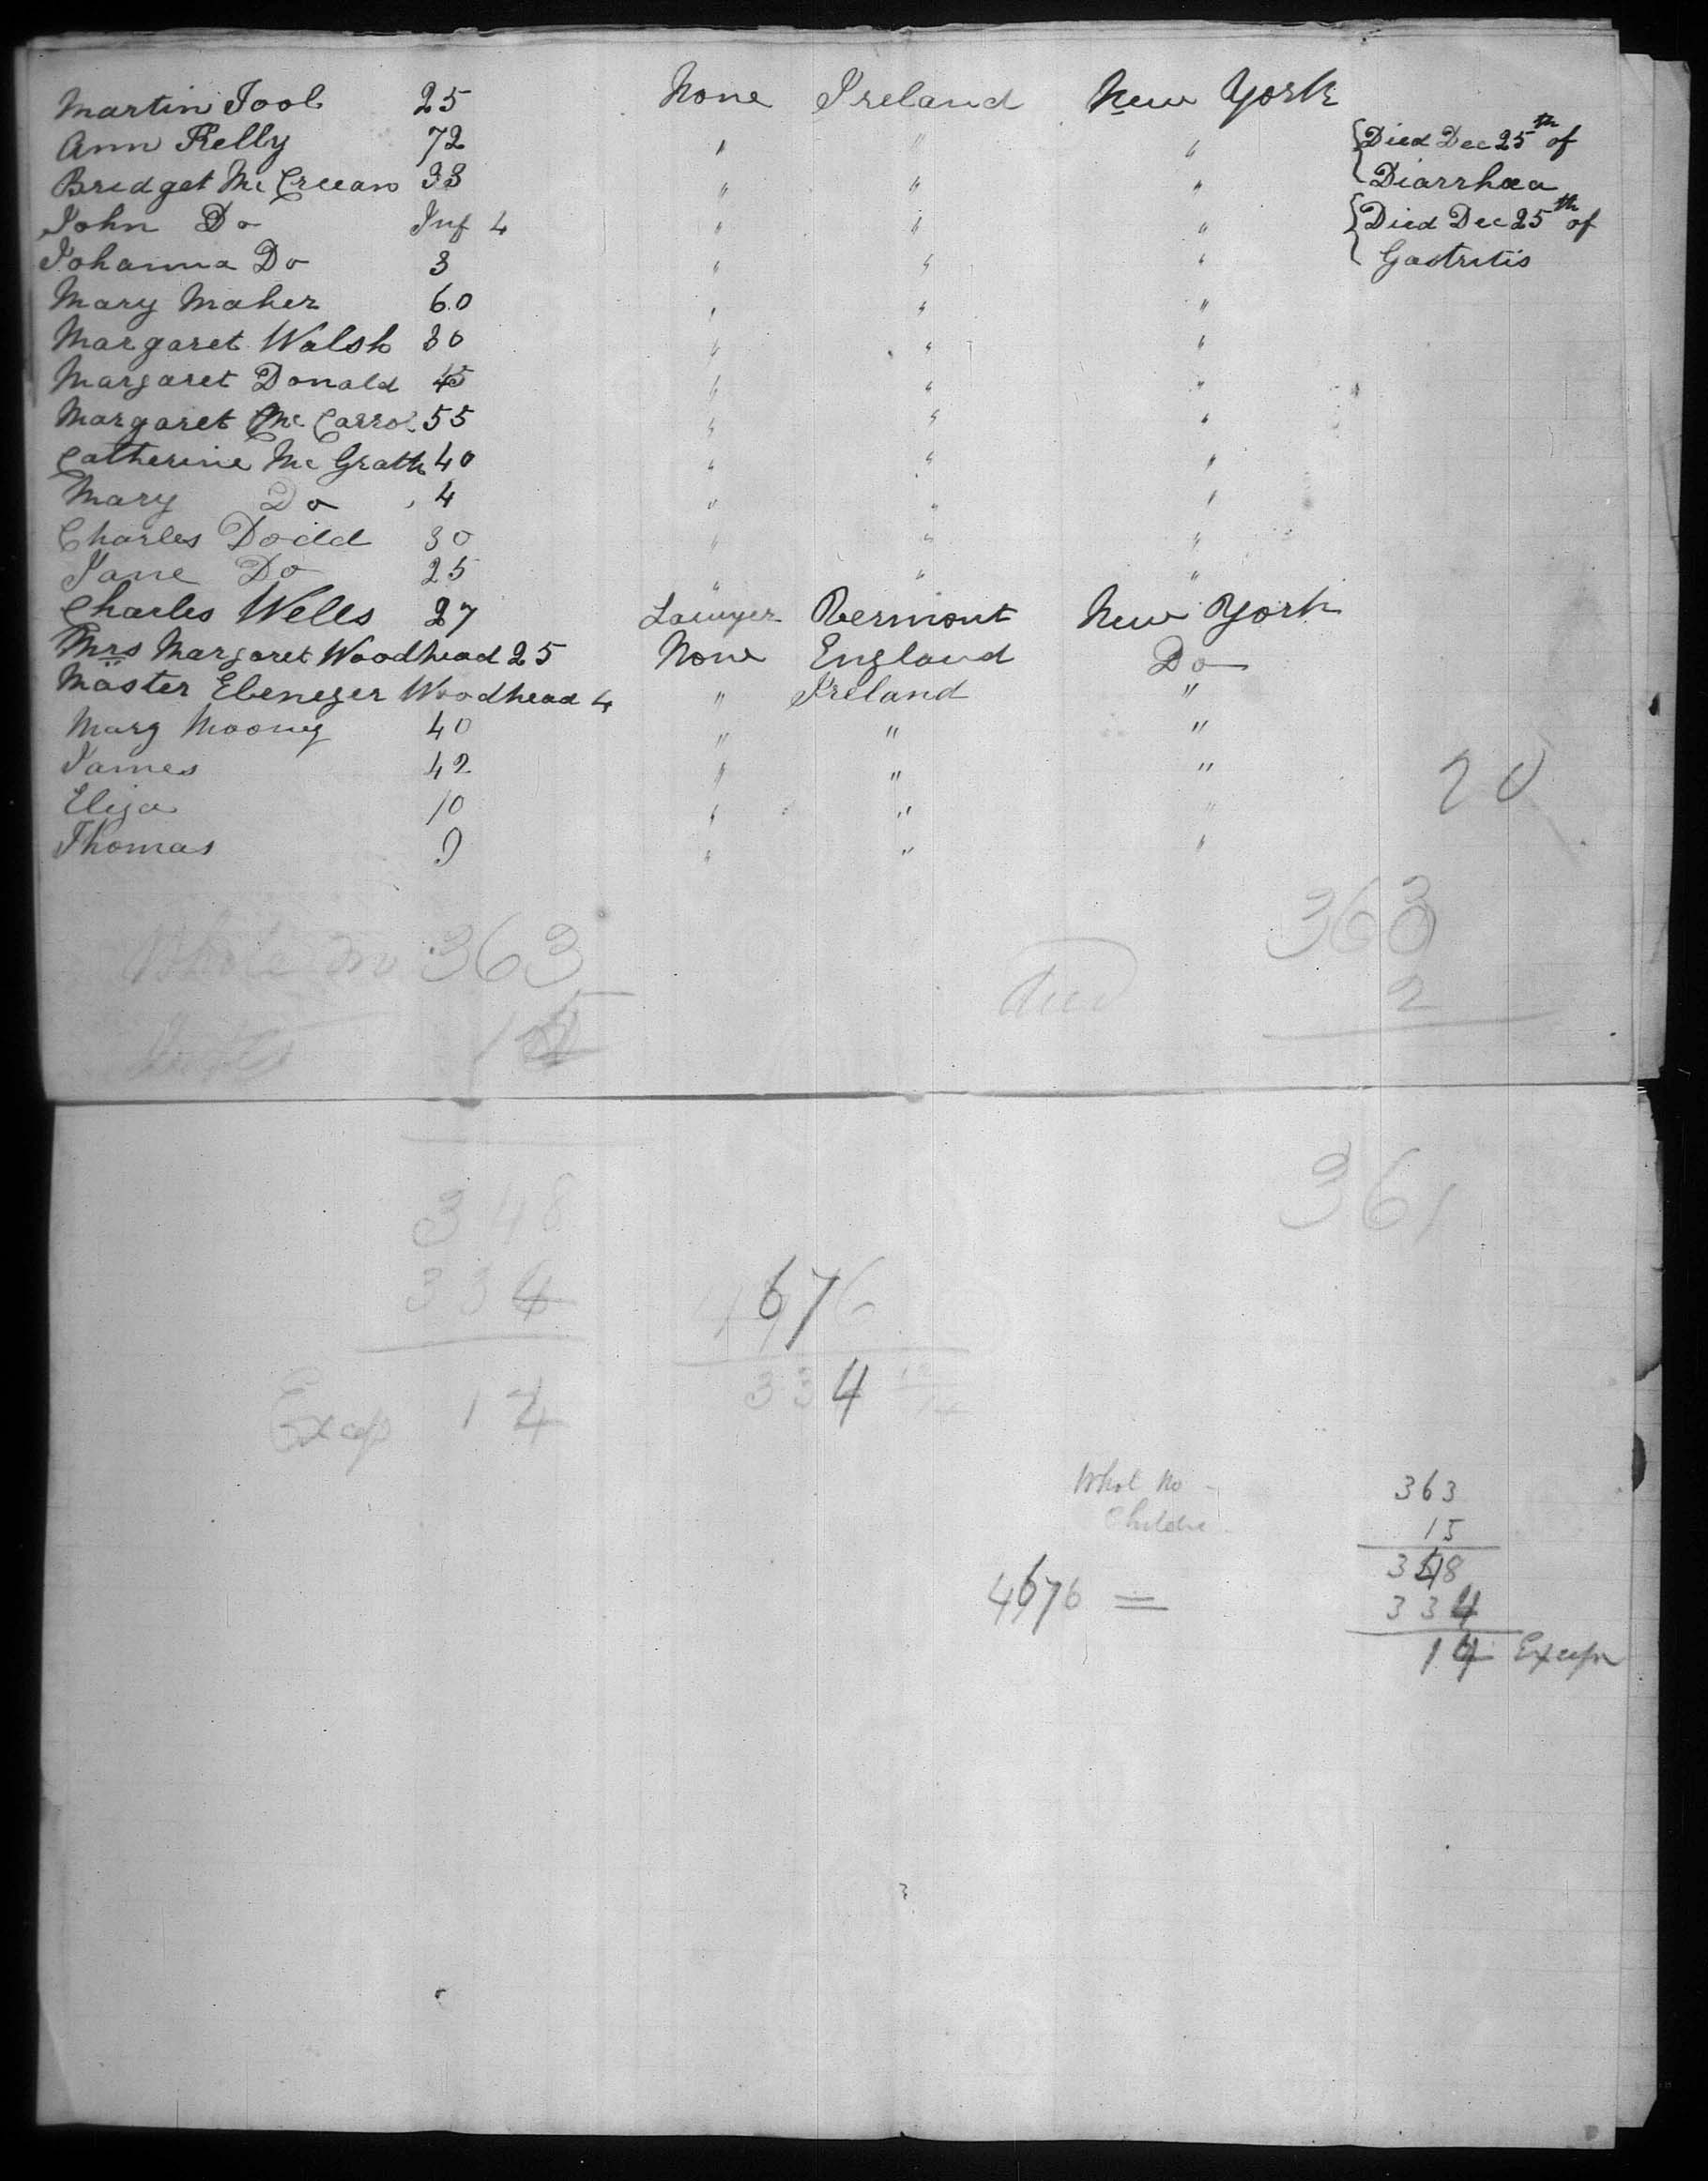 Martin Tool 25 None Ireland New York
Ann Kelly 72 " " " {Died Dec 25th of
Bridget Mc Creean 33 " " " Diarrhœa
John Do Inf 4 " " " {Died Dec 25th of
Johanna Do 3 " " " Gastritis
Mary Maher 60 " " "
Margaret Walsh 30 " " "
Margaret Donald 45 " " "
Margaret Mc Carrol 55 " " "
Catherine Mc Grath 40 " " "
Mary Do 4 " " "
Charles Dodd 30 " " "
Jane Do 25 " " "
Charles Wells 27 Lawyer Vermont New York
Mrs Margaret Woodhead 25 None England Do
Master Ebenezer Woodhead 4 " Ireland "
Mary Moony 40 " " "
James 42 " " "
Eliza 10 " " "
Thomas 9 " " "
20
Whole No 363 363
Died 2
361
348
334 4676
Excep 14 334
Whol No 363
Childre 15
348
4676 = 334
14 Excepn